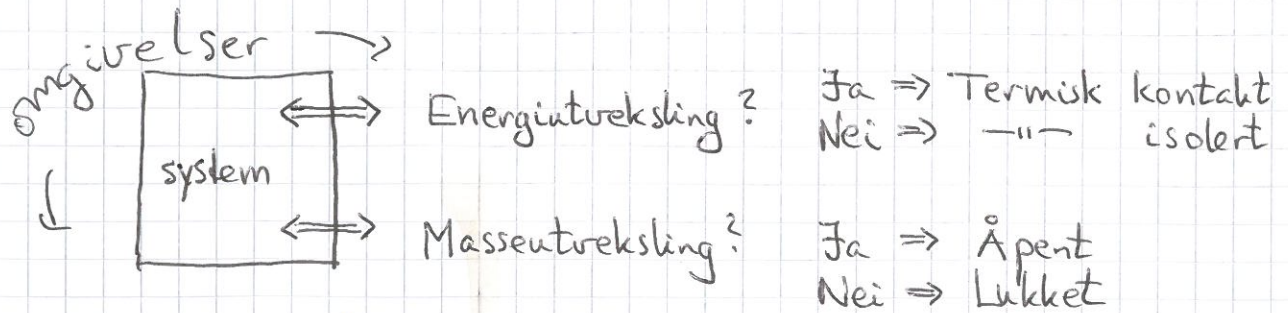 omgivelser
system
Energiutveksling? Ja ⇒ Termisk kontakt
Nei ⇒ —"— isolert
Masseutveksling? Ja ⇒ Åpent
Nei ⇒ Lukket